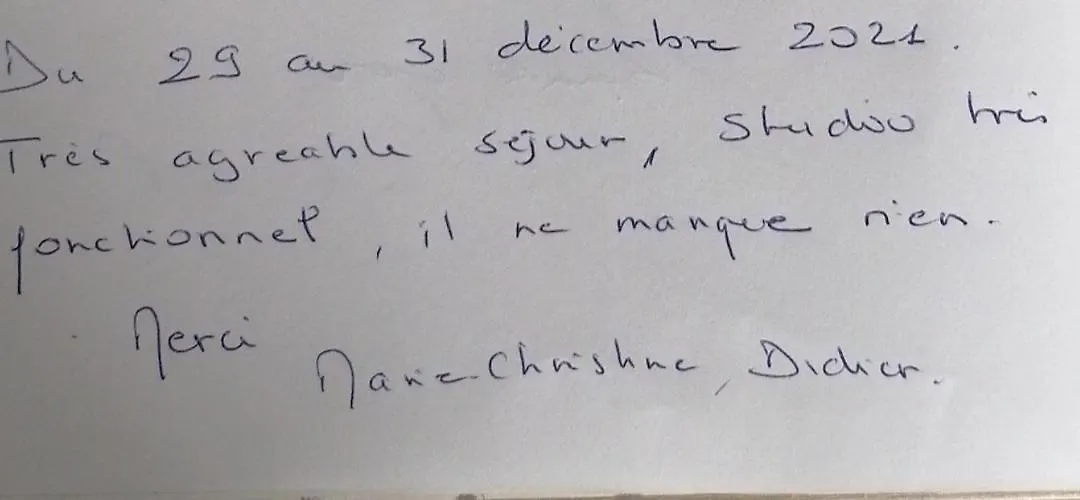 Du 29 au 31 décembre 2021.
Très agréable séjour, studio très
fonctionnel, il ne manque rien.
Merci
Marie-Christine, Didier.